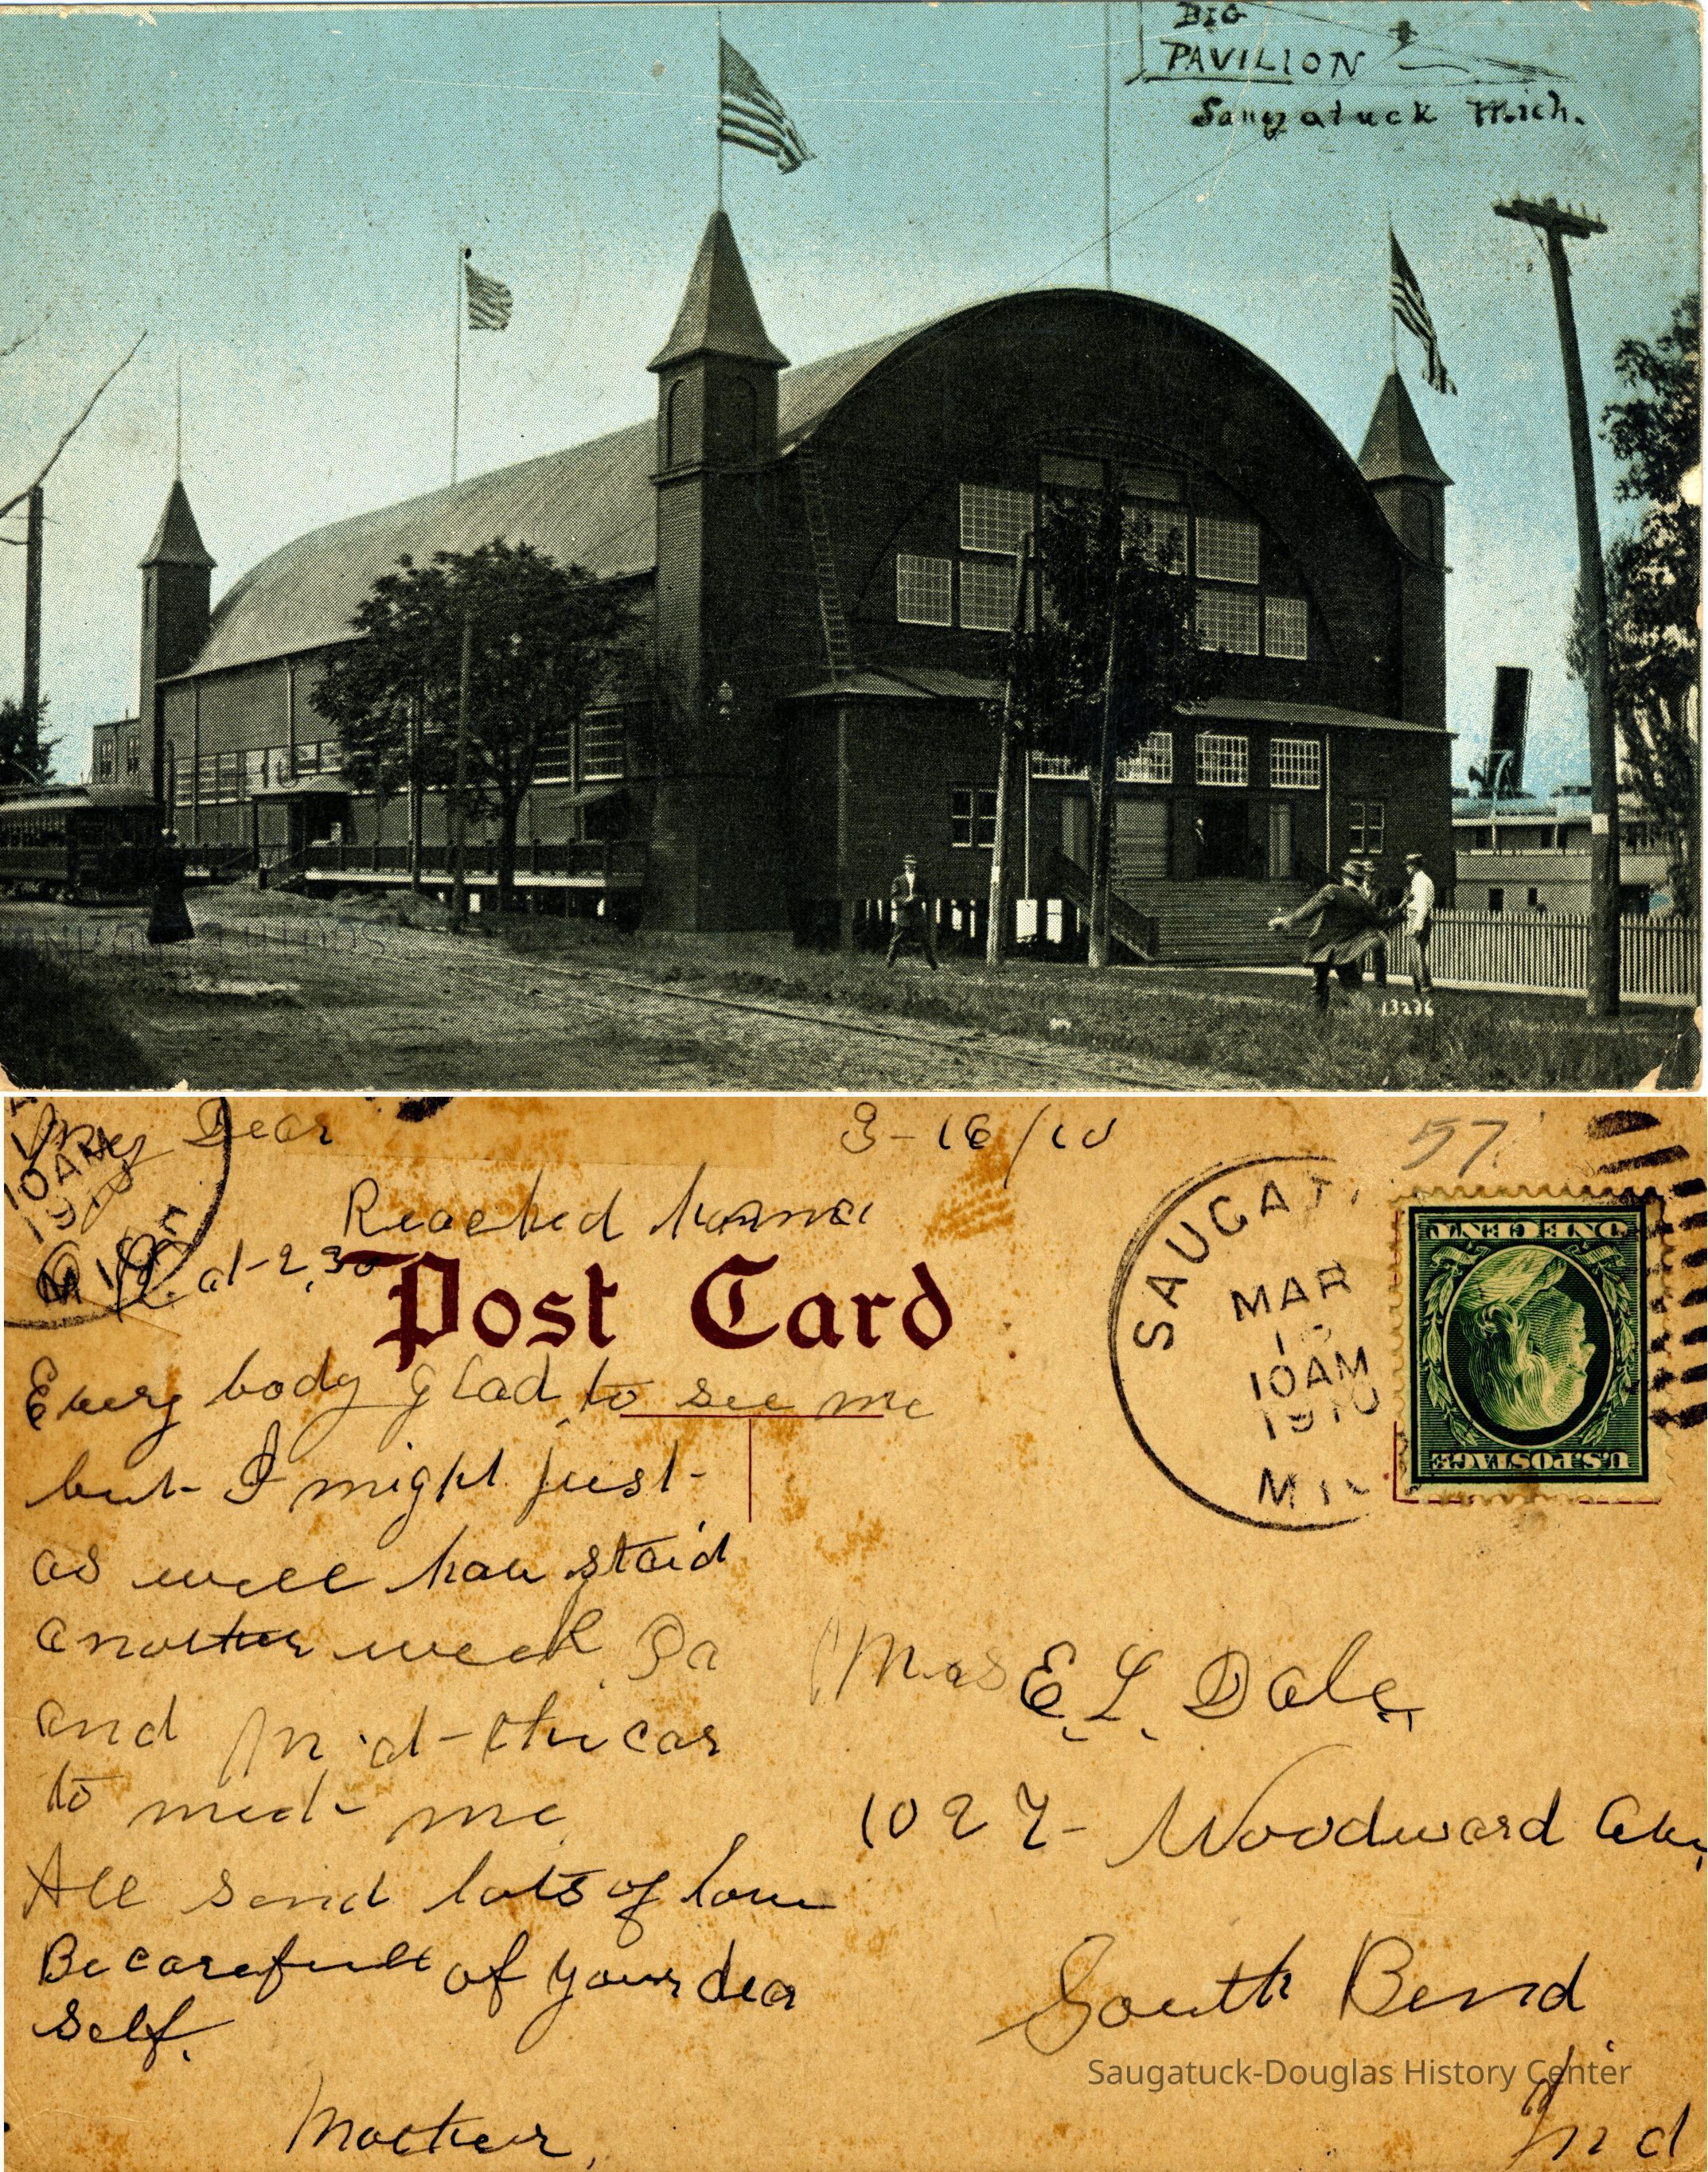 BIG
PAVILION
Saugatuck Mich.
13276
My Dear
3-16/10
57
Reached home
at 2.30
Post Card
Every body glad to see me
but I might just
as well hav staid
another week. Pa
and M at the car
to meet me.
All send lots of love
Be carefull of your dear
Self.
Mother.
10AM
1910
MICH
SAUGAT
MAR
10AM
1910
MI
ONE CENT
U.S. POSTAGE
Mrs E. L. Dale,
1027 Woodward Ave,
South Bend
Ind
Saugatuck-Douglas History Center